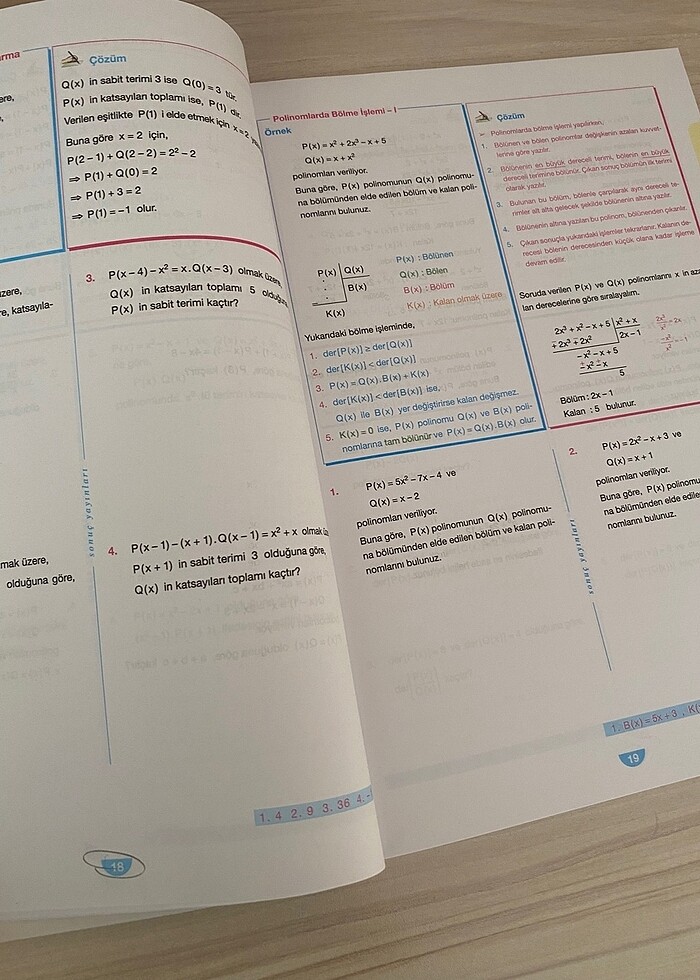 Çözüm
Q(x) in sabit terimi 3 ise Q(0) = 3 tür.
P(x) in katsayıları toplamı ise, P(1) dir.
Verilen eşitlikte P(1) i elde etmek için x = 2
Buna göre x = 2 için,
P(2 – 1) + Q(2 – 2) = 2² – 2
⇒ P(1) + Q(0) = 2
⇒ P(1) + 3 = 2
⇒ P(1) = –1 olur.
3. P(x – 4) – x² = x . Q(x – 3) olmak üzere,
Q(x) in katsayıları toplamı 5
P(x) in sabit terimi kaçtır?
4. P(x – 1) – (x + 1) . Q(x – 1) = x² + x olmak
P(x + 1) in sabit terimi 3 olduğuna göre,
Q(x) in katsayıları toplamı kaçtır?
olduğuna göre,
sonuç yayınları
1. 4 2. 9 3. 36 4. –
18
Polinomlarda Bölme İşlemi – I
Örnek
P(x) = x² + 2x³ – x + 5
Q(x) = x + x²
polinomları veriliyor.
Buna göre, P(x) polinomunun Q(x) polinomu-
na bölümünden elde edilen bölüm ve kalan poli-
nomlarını bulunuz.
P(x) Q(x)
B(x)
K(x)
P(x) : Bölünen
Q(x) : Bölen
B(x) : Bölüm
K(x) : Kalan olmak üzere
Yukarıdaki bölme işleminde,
1. der[P(x)] ≥ der[Q(x)]
2. der[K(x)] < der[Q(x)]
3. P(x) = Q(x) . B(x) + K(x)
4. der[K(x)] < der[B(x)] ise,
Q(x) ile B(x) yer değiştirirse kalan değişmez.
5. K(x) = 0 ise, P(x) polinomu Q(x) ve B(x) poli-
nomlarına tam bölünür ve P(x) = Q(x) . B(x) olur.
Çözüm
Polinomlarda bölme işlemi yapılırken,
1. Bölünen ve bölen polinomlar değişkenin azalan kuvvet-
lerine göre yazılır.
2. Bölünenin en büyük dereceli terimi, bölenin en büyük
dereceli terimine bölünür. Çıkan sonuç bölümün ilk terimi
olarak yazılır.
3. Bulunan bu bölüm, bölenle çarpılarak aynı dereceli te-
rimler alt alta gelecek şekilde bölünenin altına yazılır.
4. Bölünenin altına yazılan bu polinom, bölünenden çıkarılır.
5. Çıkan sonuçla yukarıdaki işlemler tekrarlanır. Kalanın de-
recesi bölenin derecesinden küçük olana kadar işleme
devam edilir.
Soruda verilen P(x) ve Q(x) polinomlarını x in
lan derecelerine göre sıralayalım.
2x³ + x² – x + 5 x² + x
∓2x³ ∓ 2x² 2x – 1
–x² – x + 5
±x² ± x
5
2x³/x² = 2x
–x²/x² = –1
Bölüm : 2x – 1
Kalan : 5 bulunur.
1. P(x) = 5x² – 7x – 4 ve
Q(x) = x – 2
polinomları veriliyor.
Buna göre, P(x) polinomunun Q(x) polinomu-
na bölümünden elde edilen bölüm ve kalan poli-
nomlarını bulunuz.
2. P(x) = 2x² – x + 3 ve
Q(x) = x + 1
polinomları veriliyor.
Buna göre, P(x)
na bölümünden elde
nomlarını bulunuz.
sonuç yayınları
1. B(x) = 5x + 3 ,
19